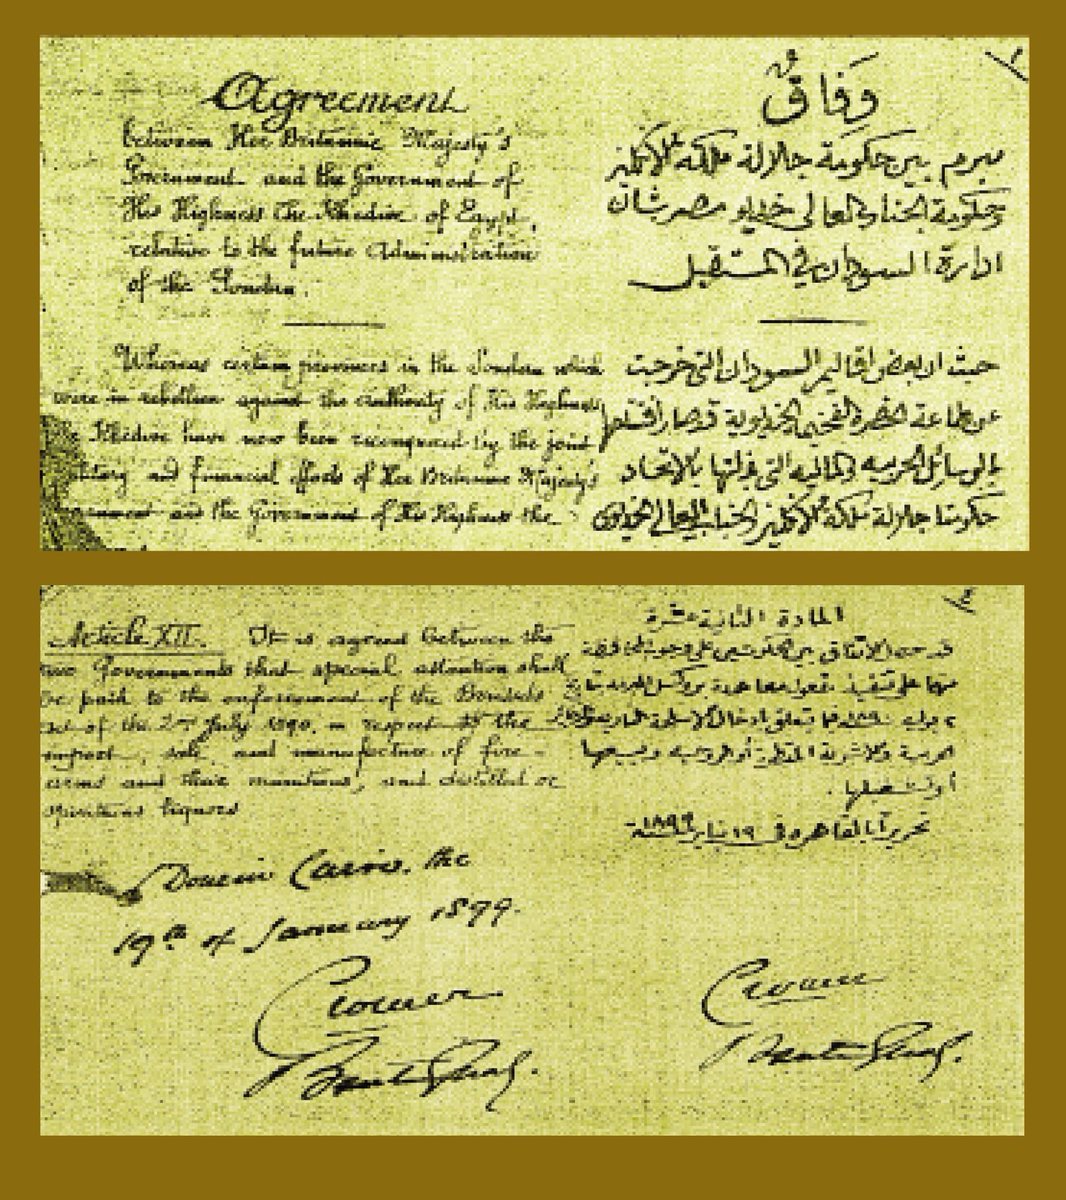 Agreement
between Her Britannic Majesty's
Government and the Government of
His Highness the Khedive of Egypt,
relative to the future Administration
of the Soudan.
Whereas certain provinces in the Soudan which
were in rebellion against the authority of His Highness
Khedive have now been reconquered by the joint
and financial efforts of Her Britannic Majesty's
and the Government of His Highness the
١
وَفَاقٌ
مبرم بين حكومة جلالة ملكة الانكليز
وحكومة الجناب العالى خديو مصر بشأن
ادارة السودان فى المستقبل
حيث ان بعض اقاليم السودان التى خرجت
عن طاعة الحضرة الفخيمة الخديوية قد صار افتتاحها
بالوسائل الحربيه والماليه التى بذلتها بالاتحاد
حكومتا جلالة ملكة الانكليز والجناب العالى الخديوى
Article XII. It is agreed between the
two Governments that special attention shall
be paid to the enforcement of the Brussels
act of the 2nd July 1890, in respect to the
import, sale, and manufacture of fire-
arms and their munitions, and distilled or
spirituous liquors
Done in Cairo, the
19th of January 1899.
Cromer
Boutros Ghali
٤
المادة الثانية عشرة
قد حصل الاتفاق بين الحكومتين على وجوب المحافظة
منهما على تنفيذ مفعول معاهدة بروكسل
٢ يوليه ١٨٩٠ فيما يتعلق بادخال الاسلحة النارية
الحربية والاشربة المقطرة أو الروحيه وبيعها
أو تشغيلها .
تحريرًا بالقاهره فى ١٩ يناير سنة ١٨٩٩
Cromer
Boutros Ghali